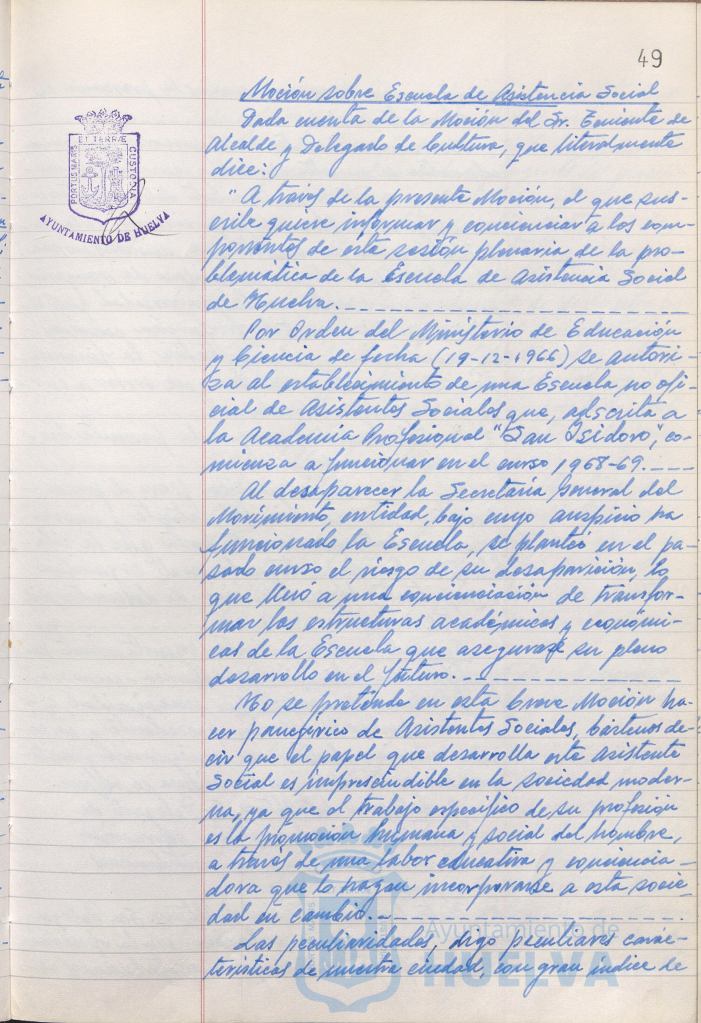 49
Moción sobre Escuela de Asistencia Social
Dada cuenta de la Moción del Sr. Teniente de
Alcalde y Delegado de Cultura, que literalmente
dice:
"A través de la presente Moción, el que sus-
cribe quiere informar y concienciar a los com-
ponentes de esta sesión plenaria de la pro-
blemática de la Escuela de Asistencia Social
de Huelva.
Por Orden del Ministerio de Educación
y Ciencia de fecha (19-12-1966) se autori-
za al establecimiento de una Escuela no ofi-
cial de Asistentes Sociales que, adscrita a
la Academia Profesional "San Isidoro", co-
mienza a funcionar en el curso 1968-69.
Al desaparecer la Secretaría General del
Movimiento, entidad, bajo cuyo auspicio ha
funcionado la Escuela, se planteó en el pa-
sado curso el riesgo de su desaparición, lo
que llevó a una concienciación de transfor-
mar las estructuras académicas y económi-
cas de la Escuela que asegurase su pleno
desarrollo en el futuro.
No se pretende en esta breve Moción ha-
cer panegírico de Asistentes Sociales, bástenos de-
cir que el papel que desarrolla este Asistente
Social es imprescindible en la sociedad moder-
na, ya que el trabajo específico de su profesión
es la promoción humana y social del hombre,
a través de una labor educativa y conciencia-
dora que lo hagan incorporarse a esta socie-
dad en cambio.
Las peculiaridades, digo peculiares carac-
terísticas de nuestra ciudad, con gran índice de
PORTUS MARIS
ET TERRÆ
CUSTODIA
AYUNTAMIENTO DE HUELVA
Ayuntamiento de
HUELVA